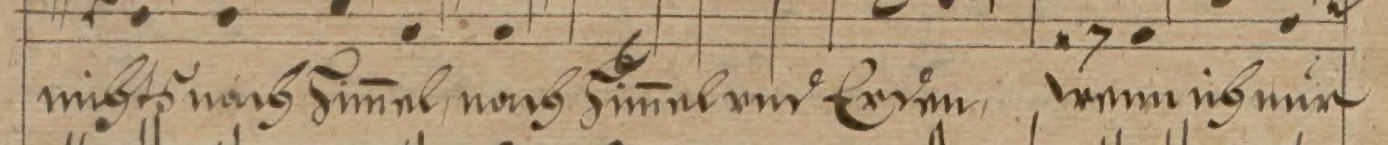 nichts nach Him̅el, nach Him̅el vnd Erden, wenn ich nur